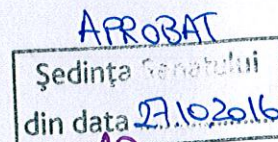 APROBAT
Ședința Senatului
din data 27.10.2016